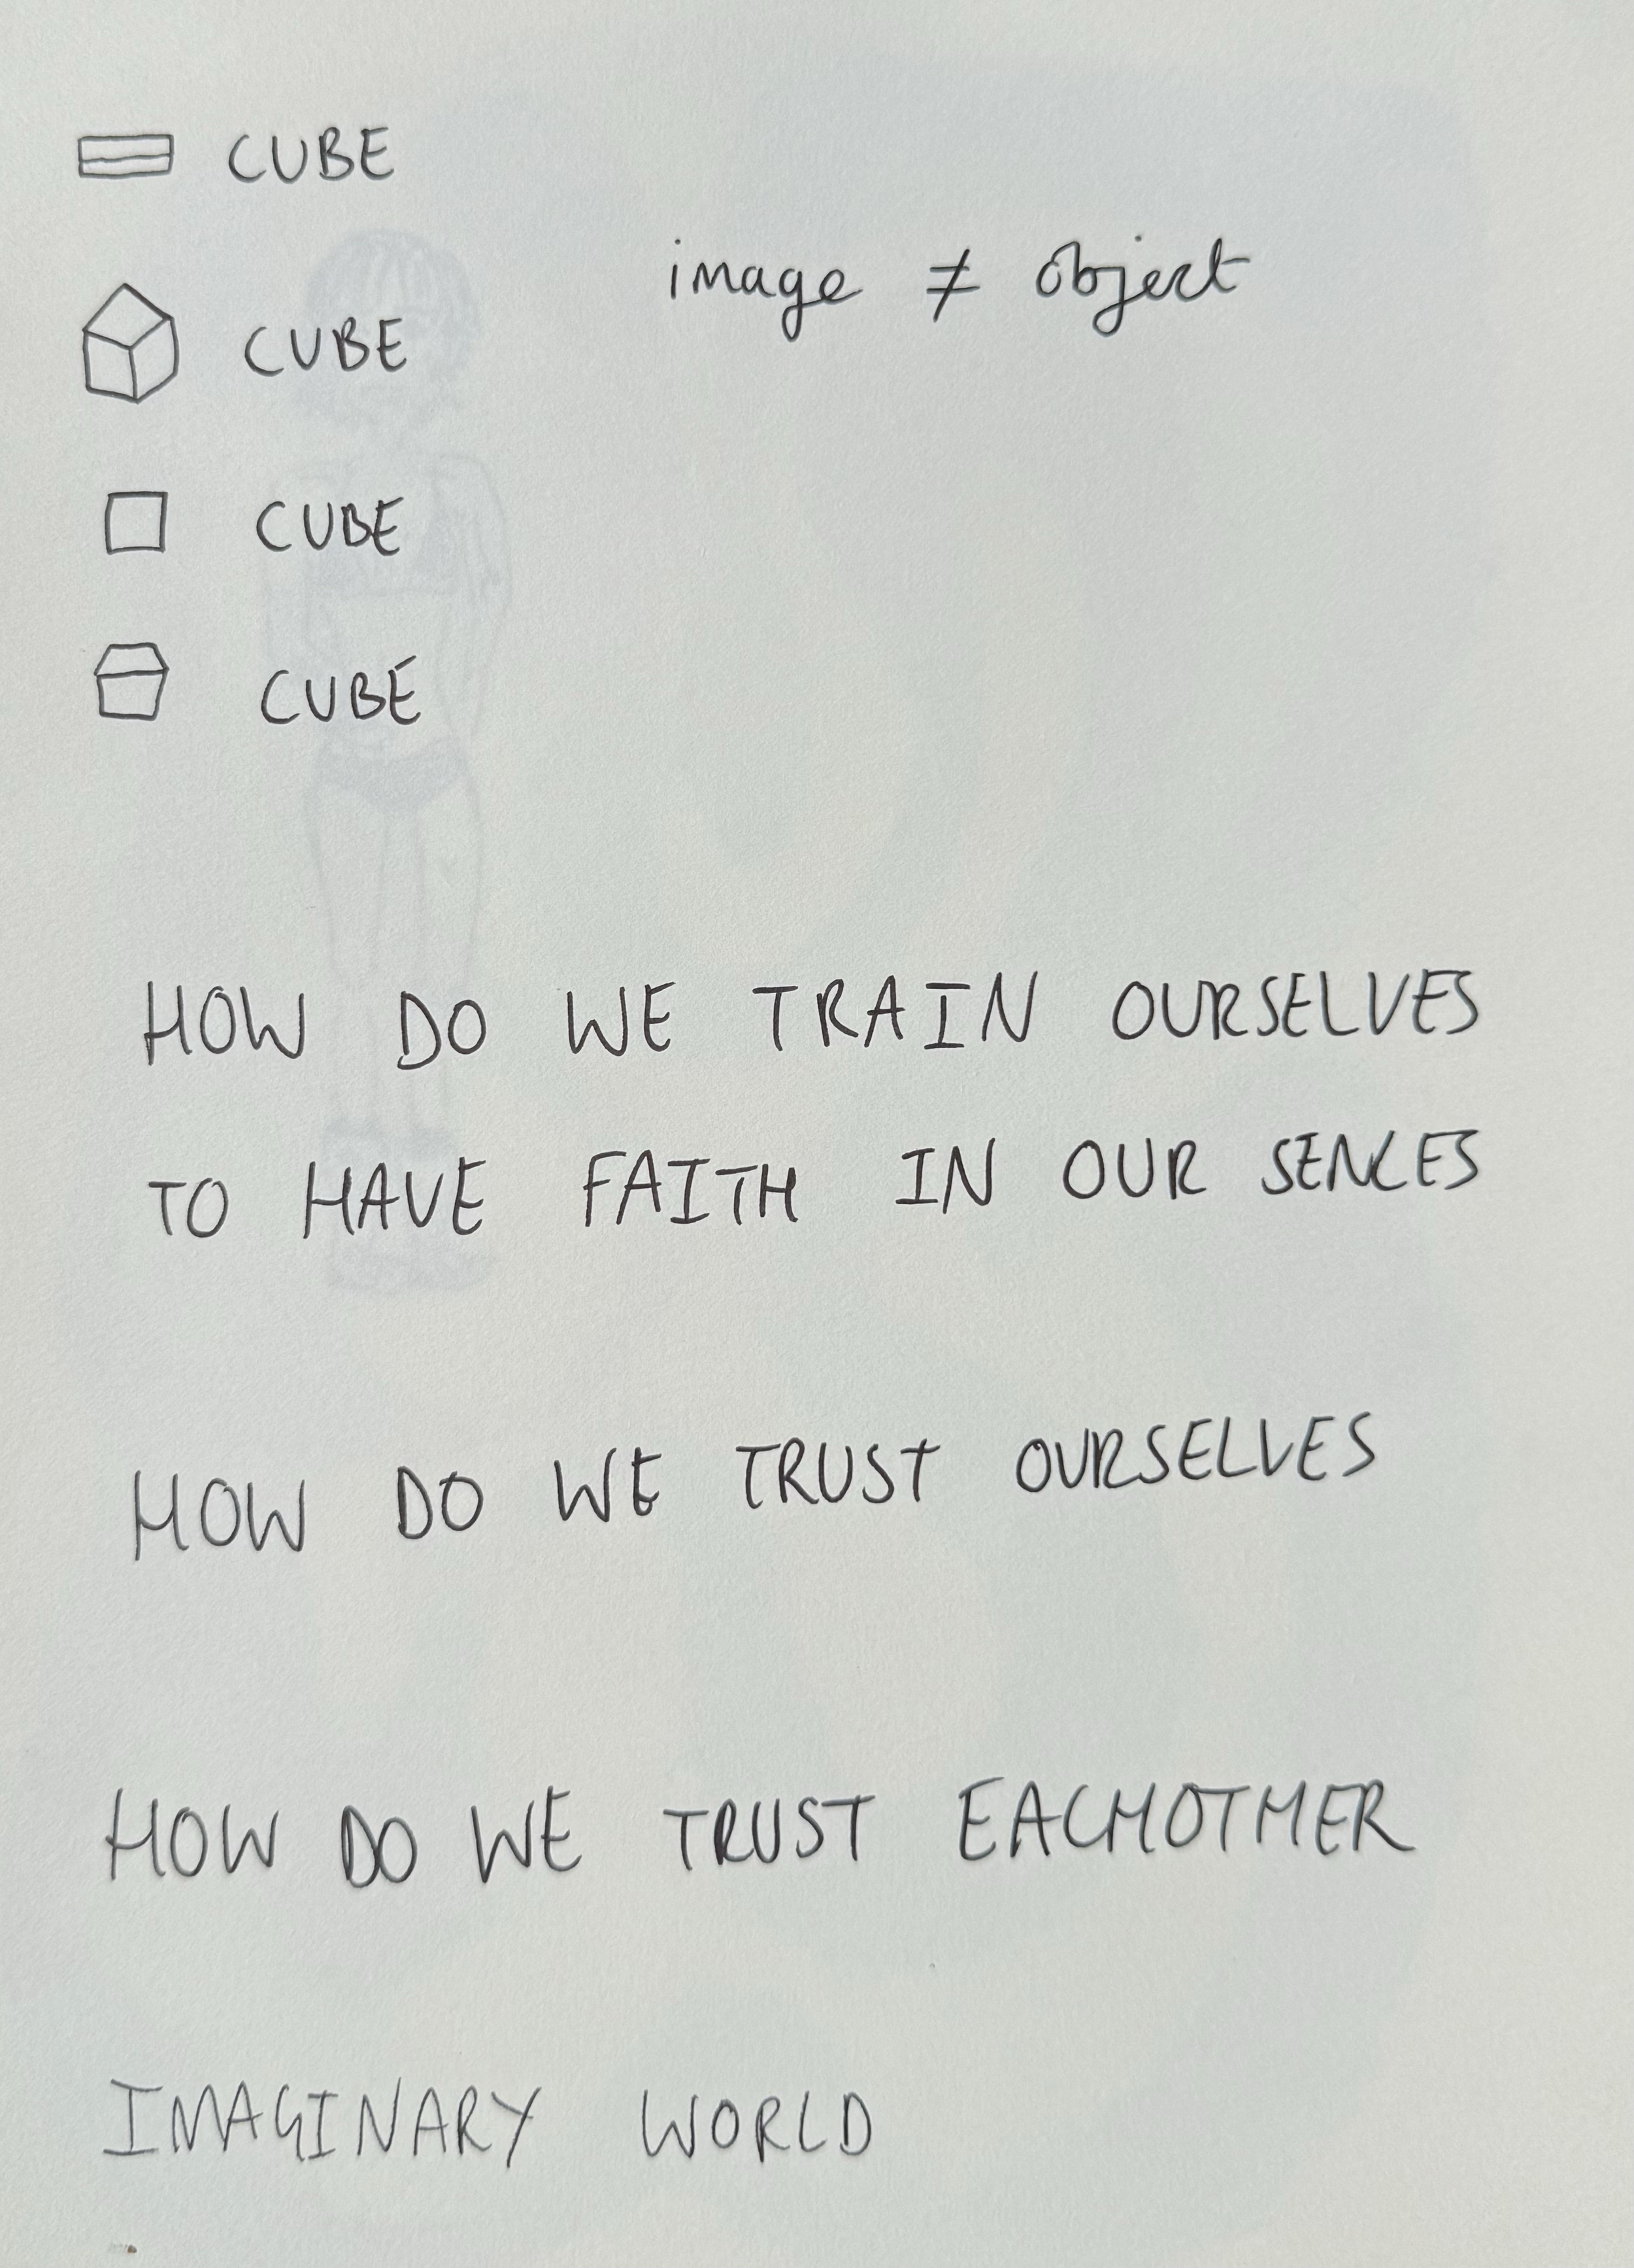 CUBE
image ≠ object
CUBE
CUBE
CUBE
HOW DO WE TRAIN OURSELVES
TO HAVE FAITH IN OUR SENCES
HOW DO WE TRUST OURSELVES
HOW DO WE TRUST EACHOTHER
IMAGINARY WORLD